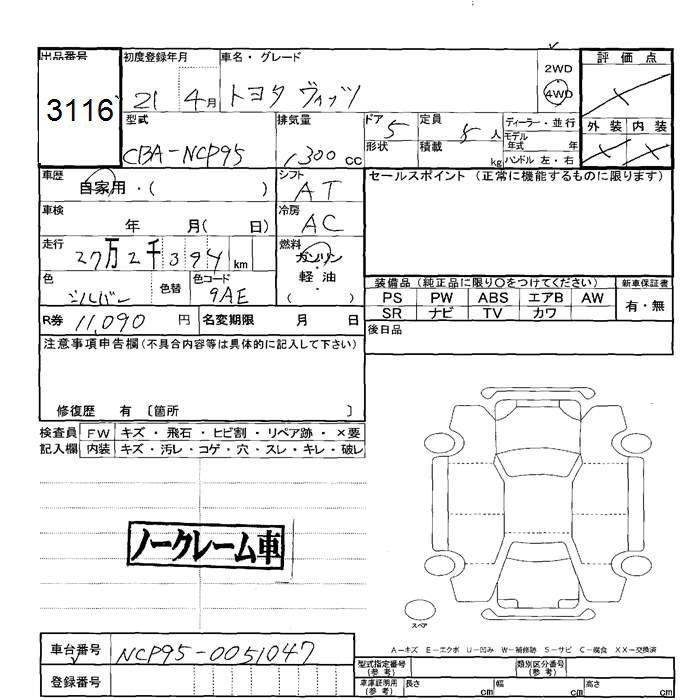 出品番号
3116
初度登録年月
21 4月
車名・グレード
トヨタ ヴィッツ
2WD
4WD
評価点
外装 内装
型式
CBA-NCP95
排気量
1300cc
ドア 5
形状
定員 5人
積載 kg
ディーラー・並行
モデル年式 年
ハンドル 左・右
車歴
自家用・( )
シフト
AT
セールスポイント(正常に機能するものに限ります)
車検
年 月( 日)
冷房
AC
走行
27万2千394km
燃料
ガソリン・軽油
( )
色
シルバー
色替
色コード
9AE
装備品(純正品に限り〇をつけてください)
新車保証書
PS PW ABS エアB AW
SR ナビ TV カワ
有・無
R券 11,090円
名変期限 月 日
後日品
注意事項申告欄(不具合内容等は具体的に記入して下さい)
修復歴 有 〔箇所 〕
検査員記入欄
FW キズ・飛石・ヒビ割・リペア跡・×要
内装 キズ・汚レ・コゲ・穴・スレ・キレ・破レ
ノークレーム車
スペア
A-キズ E-エクボ U-凹み W-補修跡 S-サビ C-腐食 XX-交換済
車台番号 NCP95-0051047
登録番号
型式指定番号(参考)
類別区分番号(参考)
車庫証明用(参考) 長さ cm 幅 cm 高さ cm